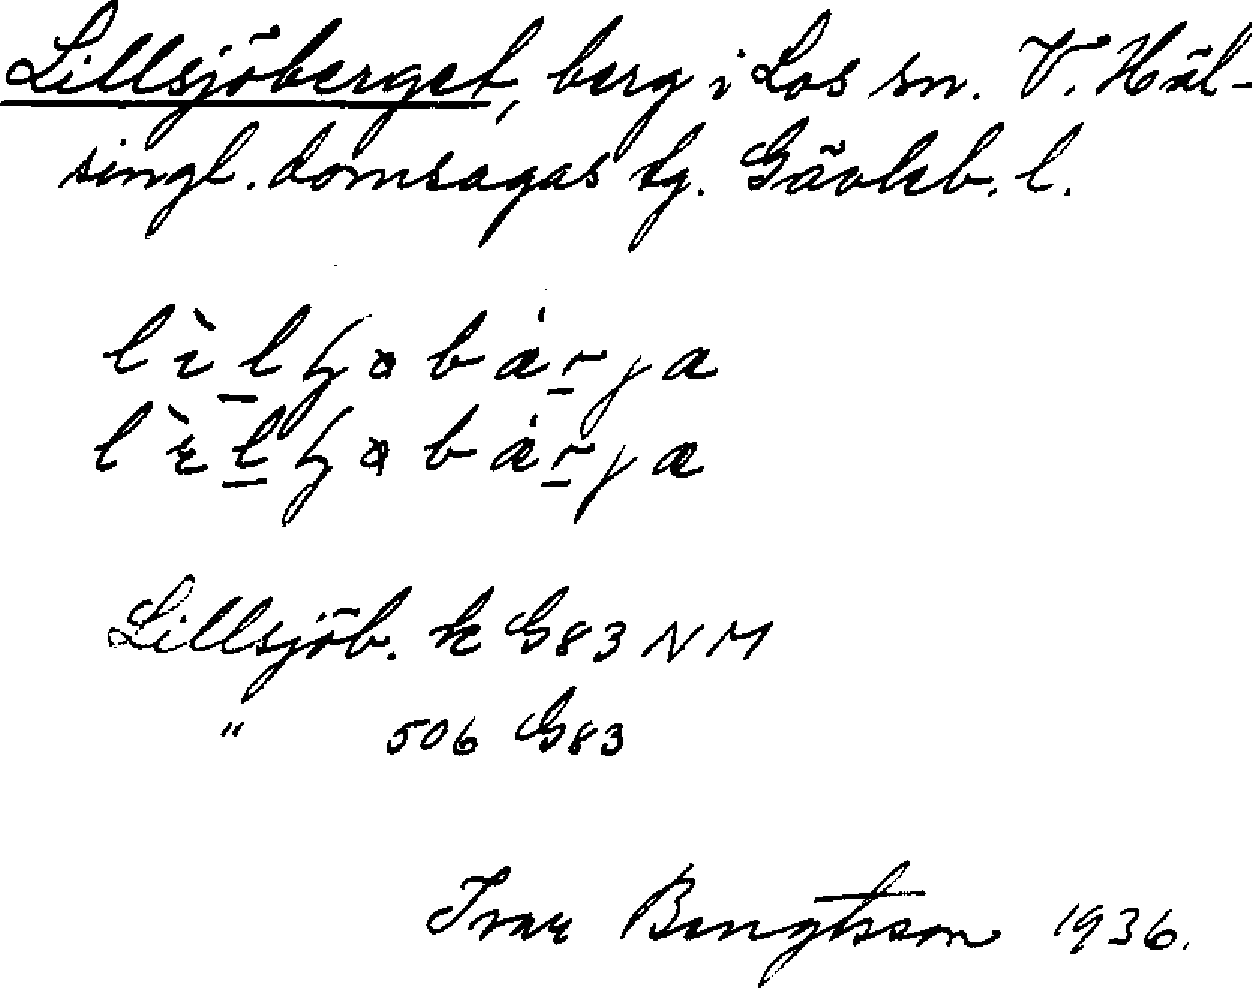 Lillsjöberget, berg i Los sn. V. Häl-
singl. domsagas tg. Gävleb. l.
Lillsjöb. k G83 NM
" 506 G83
Ivar Bengtsson 1936.